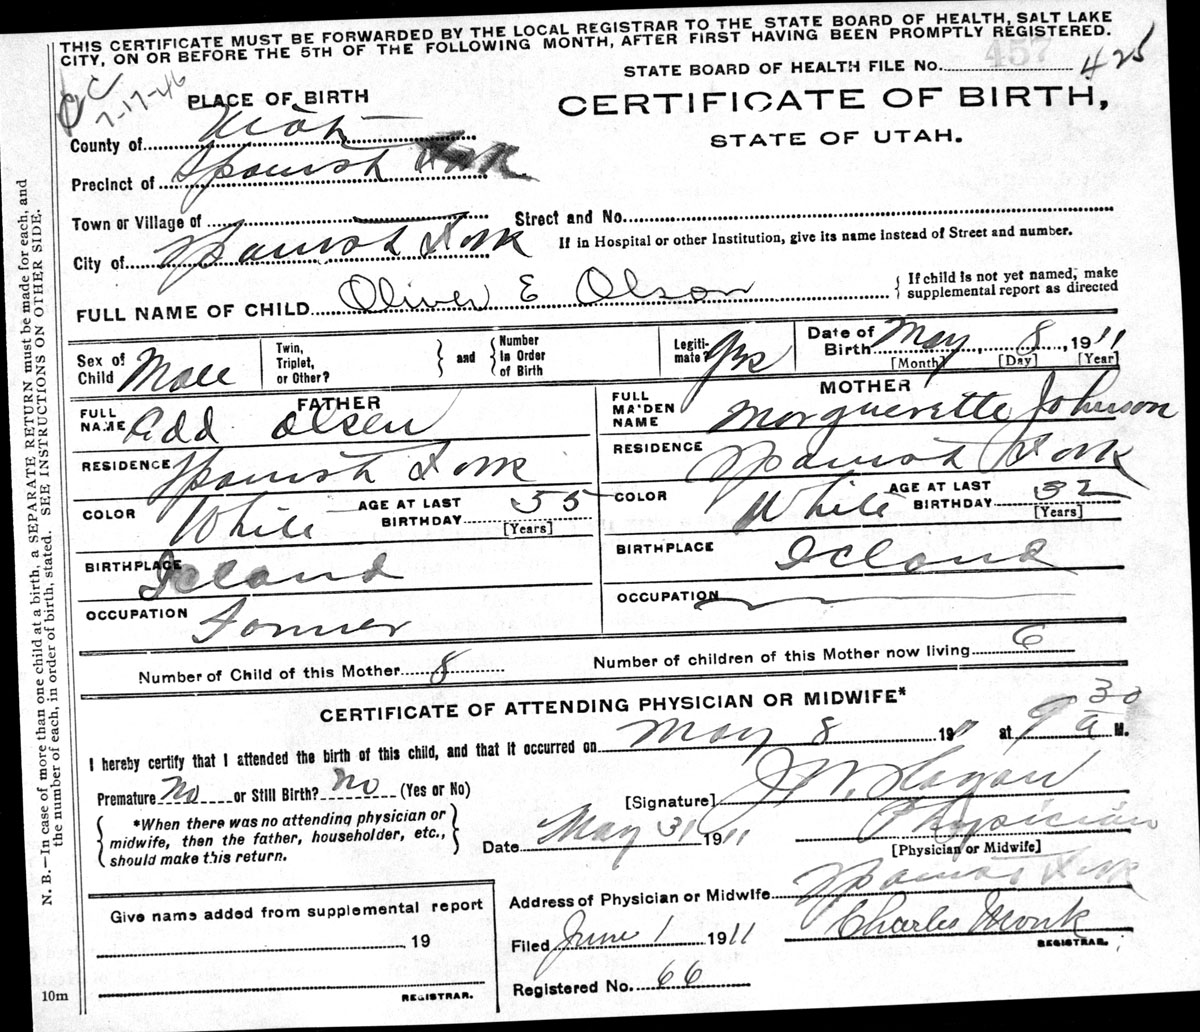 THIS CERTIFICATE MUST BE FORWARDED BY THE LOCAL REGISTRAR TO THE STATE BOARD OF HEALTH, SALT LAKE
CITY, ON OR BEFORE THE 5TH OF THE FOLLOWING MONTH, AFTER FIRST HAVING BEEN PROMPTLY REGISTERED.
457
STATE BOARD OF HEALTH FILE NO. 425
7-17-46
PLACE OF BIRTH
CERTIFICATE OF BIRTH,
STATE OF UTAH.
County of Utah
Precinct of Spanish Fork
Town or Village of Street and No.
City of Spanish Fork If in Hospital or other Institution, give its name instead of Street and number.
FULL NAME OF CHILD Oliver E Olson { If child is not yet named, make
supplemental report as directed
Sex of Child Male
Twin, Triplet, or Other? } and { Number in Order of Birth
Legiti-mate? Yes
Date of Birth May, 8, 1911
[Month] [Day] [Year]
FATHER
FULL NAME Edd Olsen
RESIDENCE Spanish Fork
COLOR White AGE AT LAST BIRTHDAY 55
[Years]
BIRTHPLACE Iceland
OCCUPATION Farmer
MOTHER
FULL MAIDEN NAME Morguerette Johnson
RESIDENCE Spanish Fork
COLOR White AGE AT LAST BIRTHDAY 32
[Years]
BIRTHPLACE Icland
OCCUPATION
Number of Child of this Mother 8 Number of children of this Mother now living 6
CERTIFICATE OF ATTENDING PHYSICIAN OR MIDWIFE*
I hereby certify that I attended the birth of this child, and that it occurred on May 8 1911 at 9 30 a M.
Premature No or Still Birth? No (Yes or No)
[Signature] J W. Hagan
{ *When there was no attending physician or
midwife, then the father, householder, etc.,
should make this return. }
Date May 31 1911 Physician
[Physician or Midwife]
Address of Physician or Midwife Spanish Fork
Filed June 1 1911 Charles Monk
REGISTRAR.
Registered No. 66
Give name added from supplemental report
19
REGISTRAR.
10m
N. B.—In case of more than one child at a birth, a SEPARATE RETURN must be made for each, and
the number of each, in order of birth, stated. SEE INSTRUCTIONS ON OTHER SIDE.